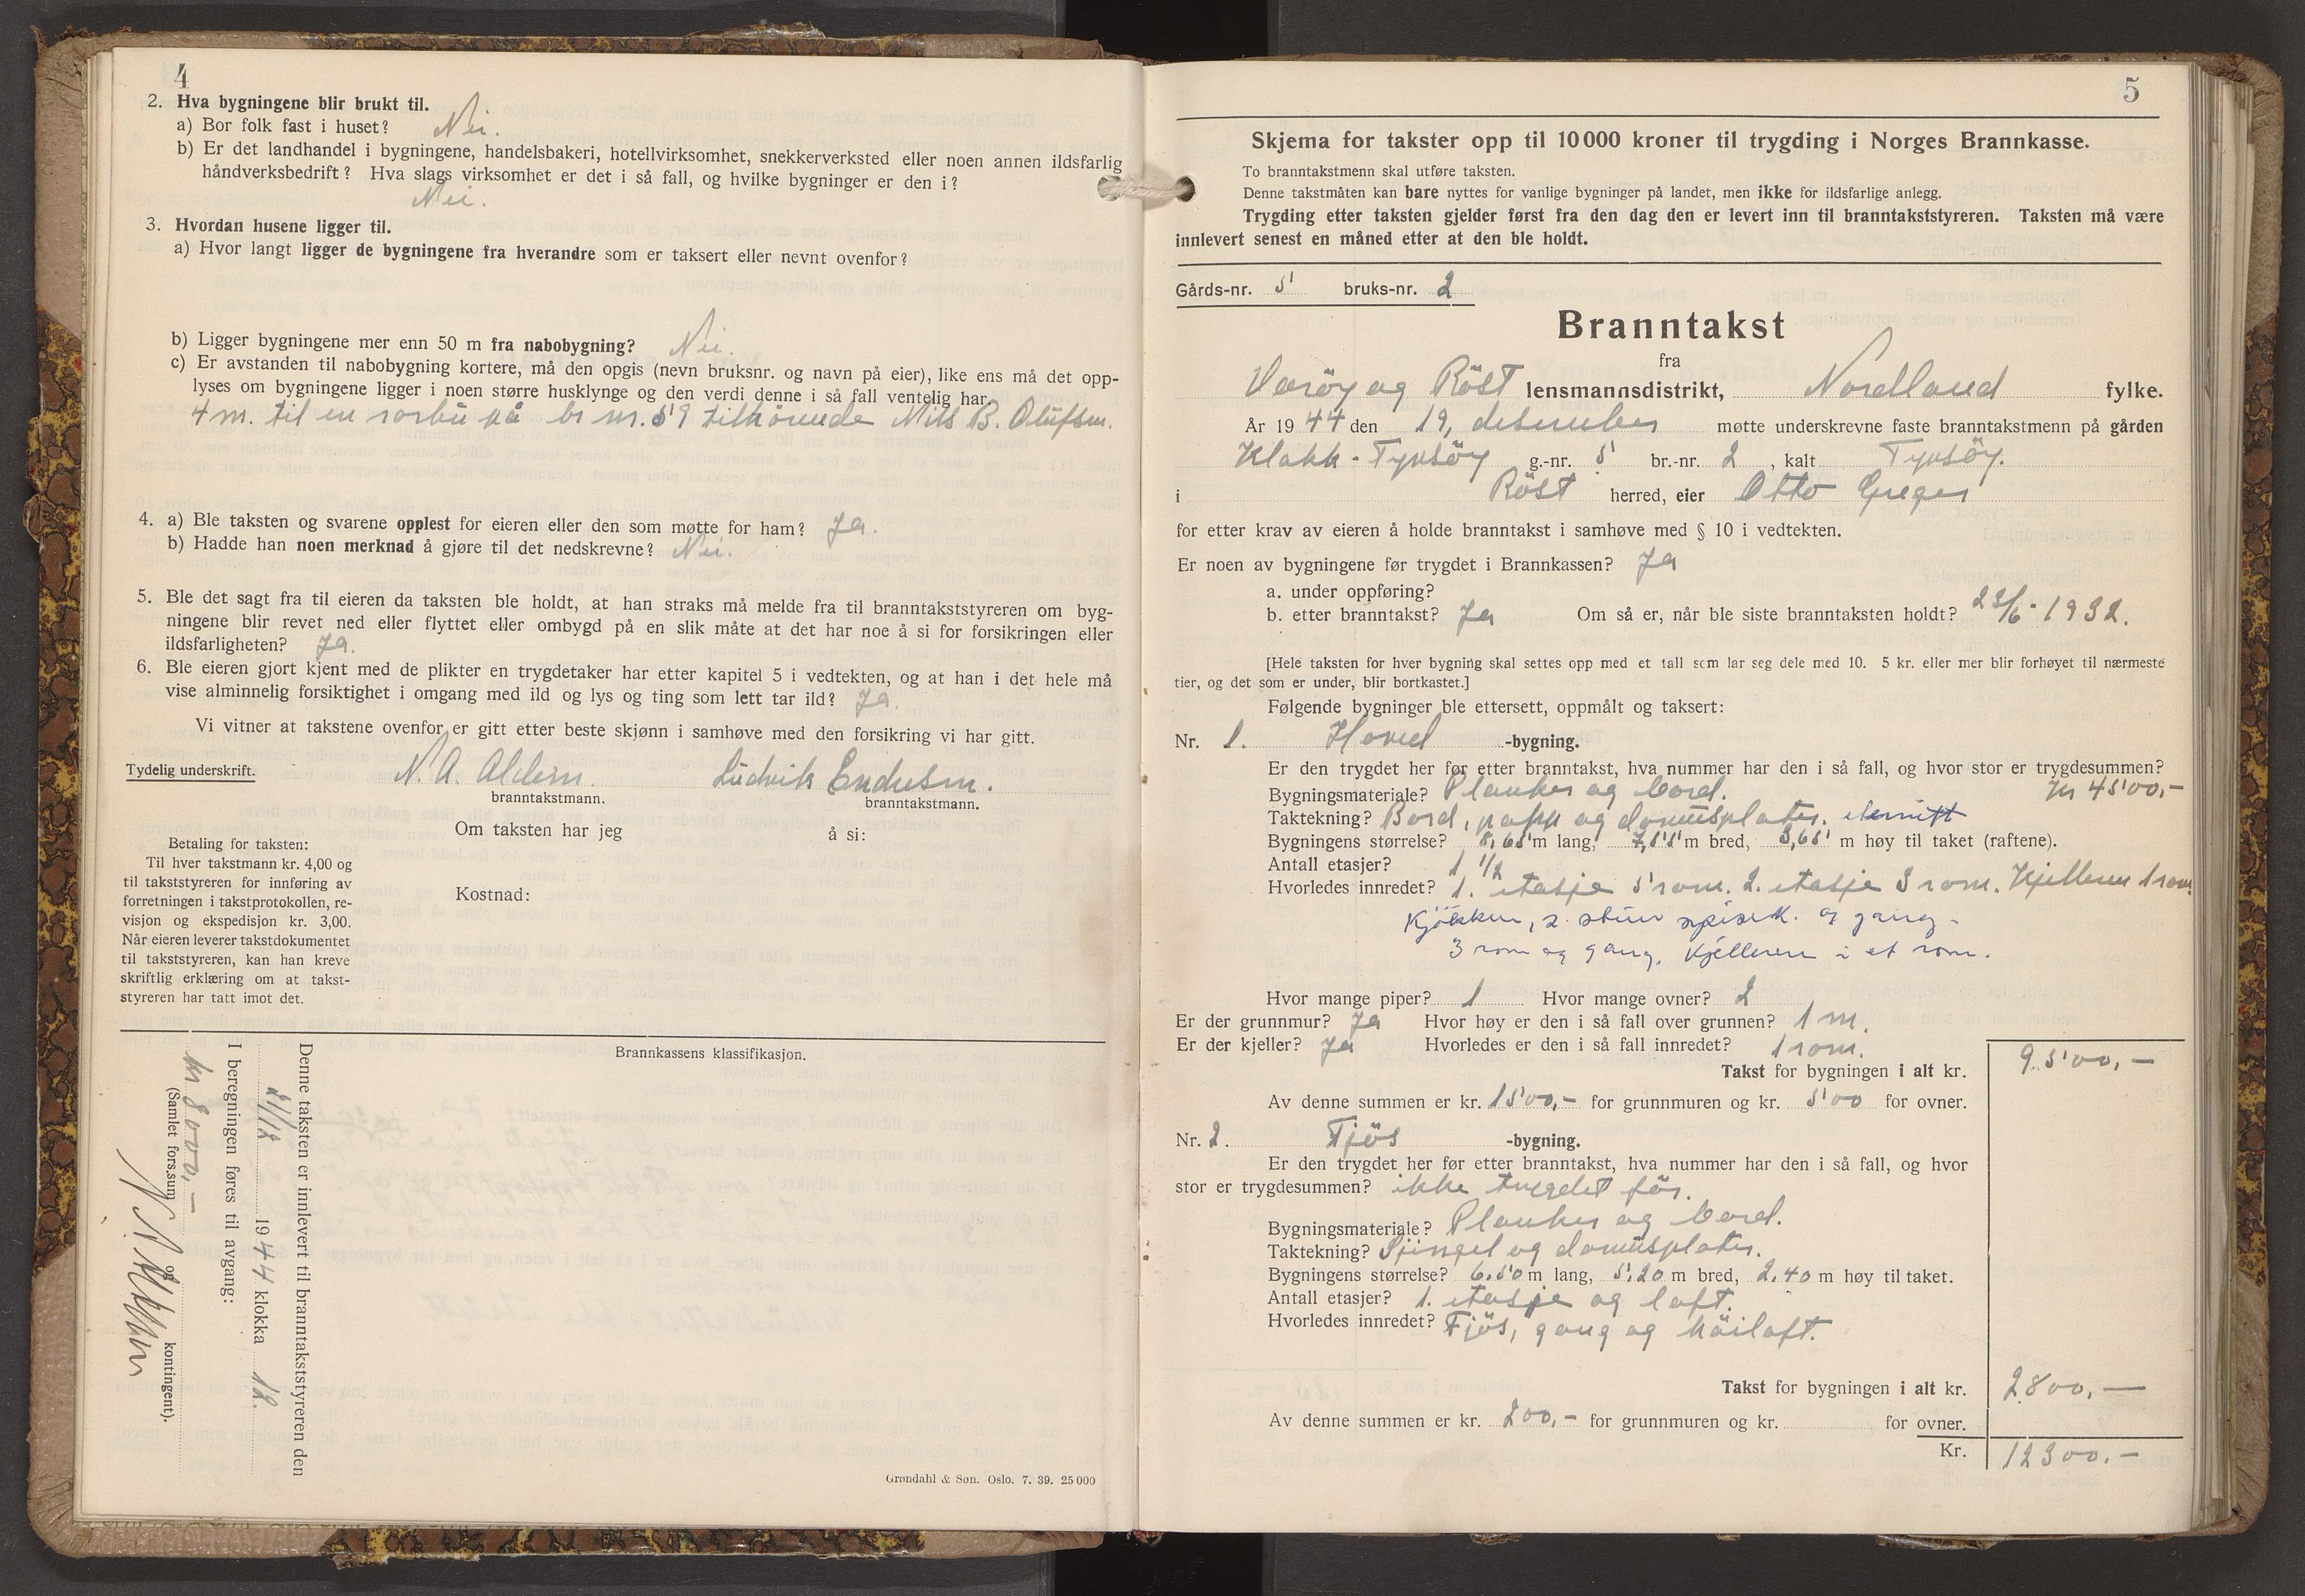 4
2. Hva bygningene blir brukt til.
a) Bor folk fast i huset? Nei.
b) Er det landhandel i bygningene, handelsbakeri, hotellvirksomhet, snekkerverksted eller noen annen ildsfarlig
håndverksbedrift? Hva slags virksomhet er det i så fall, og hvilke bygninger er den i?
Nei.
3. Hvordan husene ligger til.
a) Hvor langt ligger de bygningene fra hverandre som er taksert eller nevnt ovenfor?
b) Ligger bygningene mer enn 50 m fra nabobygning? Nei.
c) Er avstanden til nabobygning kortere, må den opgis (nevn bruksnr. og navn på eier), like ens må det opp-
lyses om bygningene ligger i noen større husklynge og den verdi denne i så fall ventelig har.
4 m. til en rorbu på br nr. 59 tilhörende Nils B. Olufsen.
4. a) Ble taksten og svarene opplest for eieren eller den som møtte for ham? Ja.
b) Hadde han noen merknad å gjøre til det nedskrevne? Nei.
5. Ble det sagt fra til eieren da taksten ble holdt, at han straks må melde fra til branntakststyreren om byg-
ningene blir revet ned eller flyttet eller ombygd på en slik måte at det har noe å si for forsikringen eller
ildsfarligheten? Ja.
6. Ble eieren gjort kjent med de plikter en trygdetaker har etter kapitel 5 i vedtekten, og at han i det hele må
vise alminnelig forsiktighet i omgang med ild og lys og ting som lett tar ild? Ja.
Vi vitner at takstene ovenfor er gitt etter beste skjønn i samhøve med den forsikring vi har gitt.
Tydelig underskrift. N. A. Ludvik
branntakstmann. branntakstmann.
Om taksten har jeg å si:
Betaling for taksten:
Til hver takstmann kr. 4,00 og
til takststyreren for innføring av
forretningen i takstprotokollen, re-
visjon og ekspedisjon kr. 3,00.
Når eieren leverer takstdokumentet
til takststyreren, kan han kreve
skriftlig erklæring om at takst-
styreren har tatt imot det.
Kostnad:
Denne taksten er innlevert til branntakststyreren den
21/12 1944 klokka 12.
I beregningen føres til avgang:
kr 8000,-
(Samlet fors.sum og kontingent).
Brannkassens klassifikasjon.
Grøndahl & Søn. Oslo. 7. 39. 25 000
5
Skjema for takster opp til 10 000 kroner til trygding i Norges Brannkasse.
To branntakstmenn skal utføre taksten.
Denne takstmåten kan bare nyttes for vanlige bygninger på landet, men ikke for ildsfarlige anlegg.
Trygding etter taksten gjelder først fra den dag den er levert inn til branntakststyreren. Taksten må være
innlevert senest en måned etter at den ble holdt.
Gårds-nr. 5 bruks-nr. 2
Branntakst
fra
Væröy og Röst lensmannsdistrikt, Nordland fylke.
År 1944 den 19. desember møtte underskrevne faste branntakstmenn på gården
Klakk-Tyvsöy g.-nr. 5 br.-nr. 2, kalt Tyvsöy.
i Röst herred, eier Otto Greger
for etter krav av eieren å holde branntakst i samhøve med § 10 i vedtekten.
Er noen av bygningene før trygdet i Brannkassen? Ja
a. under oppføring?
b. etter branntakst? Ja Om så er, når ble siste branntaksten holdt? 23/6-1932.
[Hele taksten for hver bygning skal settes opp med et tall som lar seg dele med 10. 5 kr. eller mer blir forhøyet til nærmeste
tier, og det som er under, blir bortkastet.]
Følgende bygninger ble ettersett, oppmålt og taksert:
Nr. 1. Hoved -bygning.
Er den trygdet her før etter branntakst, hva nummer har den i så fall, og hvor stor er trygdesummen?
Kr 4500,-
Bygningsmateriale? Planker og bord.
Taktekning? Bord, papp og domusplater. eternitt
Bygningens størrelse? 8,65 m lang, 7,55 m bred, 3,65 m høy til taket (raftene).
Antall etasjer? 1 1/2
Hvorledes innredet? 1. etasje 5 rom. 2. etasje 3 rom. Kjelleren 1 rom.
Kjøkken, 2 stuer spisek. og gang-
3 rom og gang. Kjelleren i et rom.
Hvor mange piper? 1 Hvor mange ovner? 2
Er der grunnmur? Ja Hvor høy er den i så fall over grunnen? 1 m.
Er der kjeller? Ja Hvorledes er den i så fall innredet? 1 rom.
Takst for bygningen i alt kr. 9500,-
Av denne summen er kr. 1500,- for grunnmuren og kr. 500 for ovner.
Nr. 2. Fjös -bygning.
Er den trygdet her før etter branntakst, hva nummer har den i så fall, og hvor
stor er trygdesummen? ikke trygdet för.
Bygningsmateriale? Planker og bord.
Taktekning? Spingel og domusplater.
Bygningens størrelse? 6,50 m lang, 5,20 m bred, 2,40 m høy til taket.
Antall etasjer? 1. etasje og loft.
Hvorledes innredet? Fjös, gang og höiloft.
Takst for bygningen i alt kr. 2800,-
Av denne summen er kr. 200,- for grunnmuren og kr. for ovner.
Kr. 12300,-